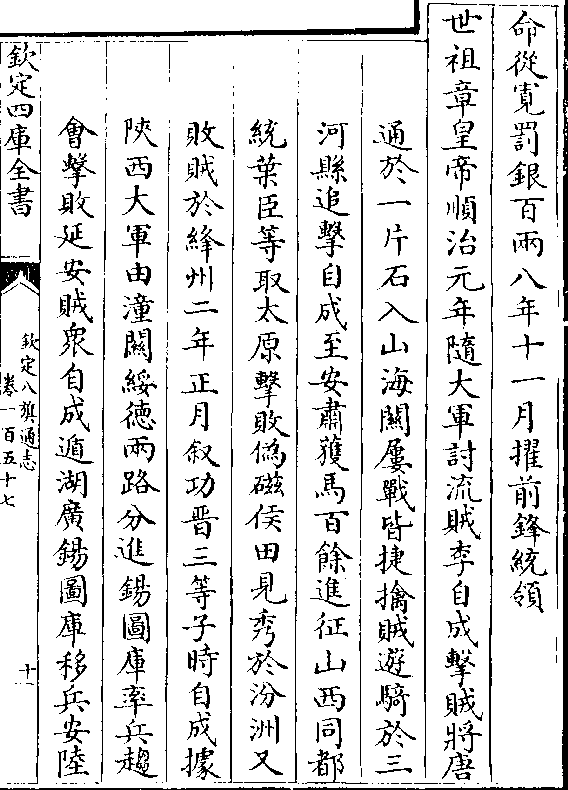 命從寛罰銀百兩八年十一月擢前鋒統領
世祖章皇帝順治元年隨大軍討流賊李自成擊賊將唐
通於一片石入山海關屢戰皆捷擒賊遊騎於三
河縣追擊自成至安肅獲馬百餘進征山西同都
統葉臣等取太原擊敗僞磁侯田見秀於汾洲又
敗賊於絳州二年正月叙功晋三等子時自成據
陜西大軍由潼關綏德兩路分進錫圖庫率兵趨
會擊敗延安賊衆自成遁湖廣錫圖庫移兵安陸
欽定四庫全書
欽定八旗通志
卷一百五十七
十一